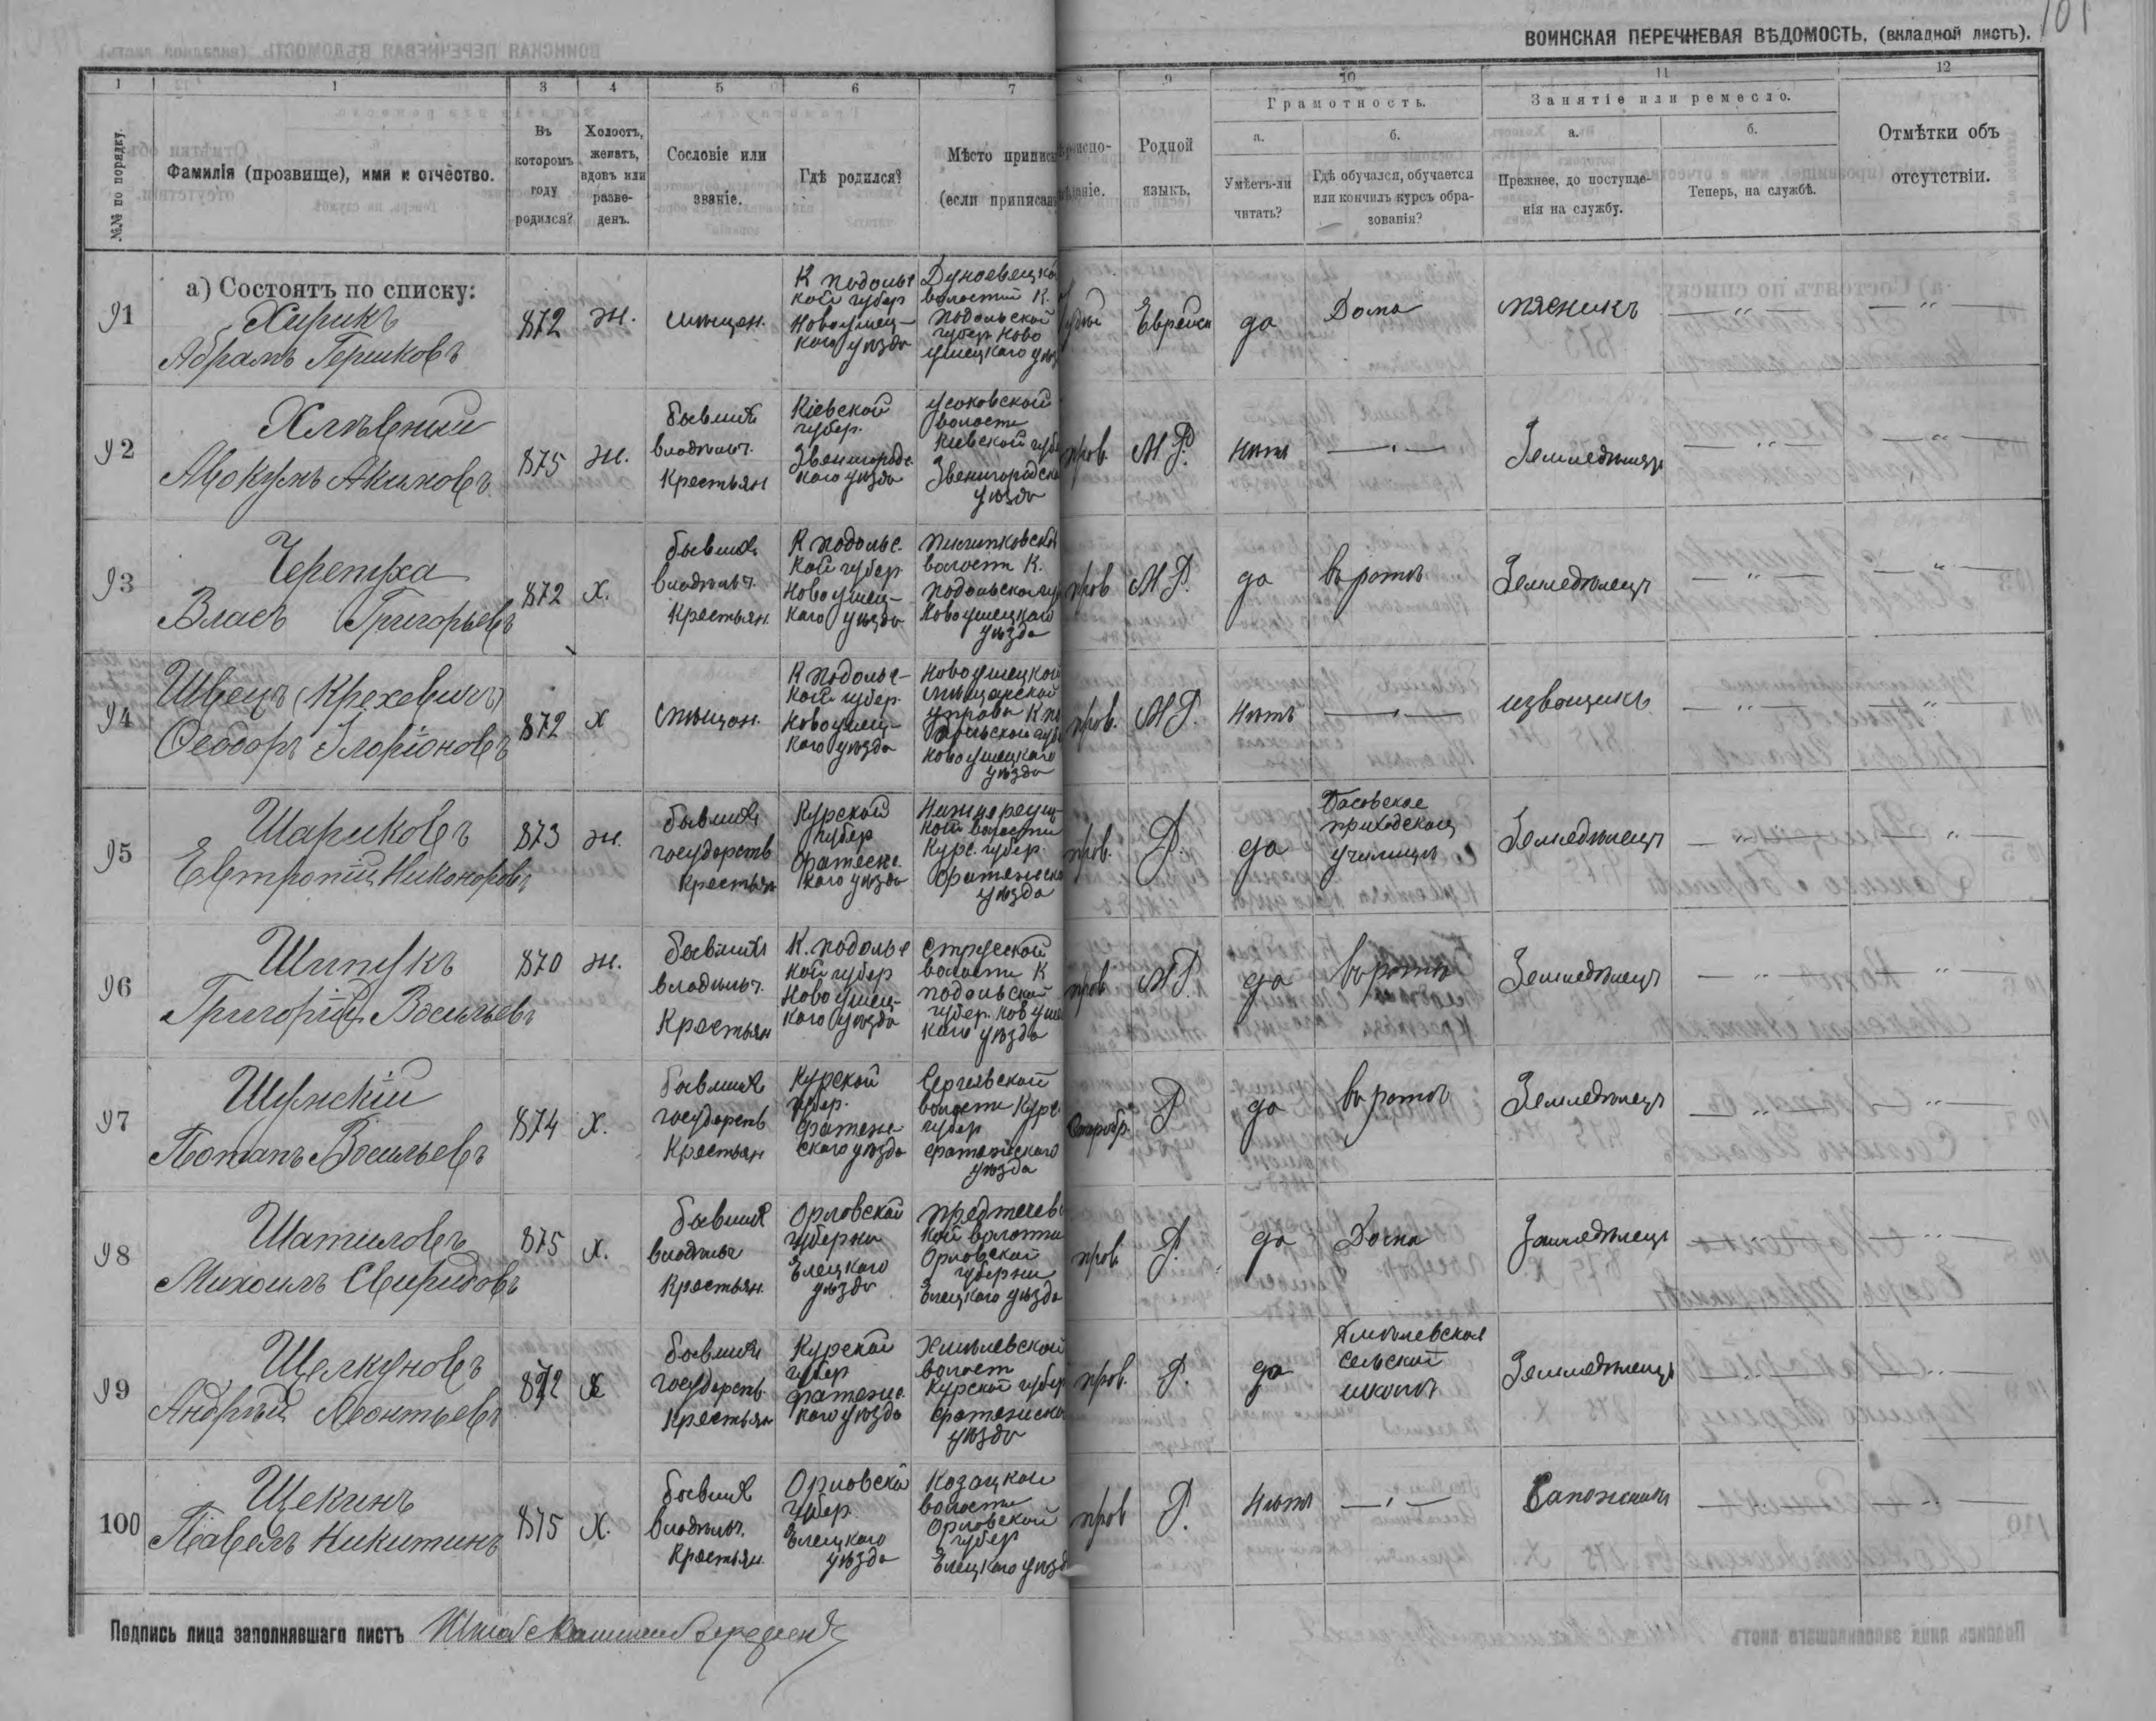 101
ВОИНСКАЯ ПЕРЕЧНЕВАЯ ВѢДОМОСТЬ, (вкладной листъ).
1 1 3 4 5 6 7 8 9 10 11 12
№№ по порядку.
Фамилія (прозвище), имя и отчество.
Въ которомъ году родился?
Холостъ, женатъ, вдовъ или разведенъ.
Сословіе или званіе.
Гдѣ родился?
Мѣсто приписки
(если приписанъ
Родной языкъ.
Грамотность.
а.
Умѣетъ-ли читать?
б.
Гдѣ обучался, обучается или кончилъ курсъ образованія?
Занятіе или ремесло.
а.
Прежнее, до поступленія на службу.
б.
Теперь, на службѣ.
Отмѣтки объ отсутствіи.
а) Состоятъ по списку:
91
Хирикъ
Абрамъ Гершковъ
872 ж. мѣщан.
К подольс
кой губер
Новоушец-
кого уѣзда
Дуноевецкой
волостии К.
подольской
губер Ново
ушецкаго уѣз
Еврейск да Дома мясникъ — „ — — „ —
92
Авокумъ Акимовъ
875 ж.
бывший
владѣльч.
Крестьян
Кіевской
губер.
Звенигородс.
кого уѣзда
волости
Кіевской губе
Звенигородско
уѣзда
пров. М Р. нѣтъ — „ — Земледѣлецъ — „ — — „ —
93
Черепуха
Власъ Григорьевъ
872 х.
бывший
владѣльч.
Крестьян.
К подольс.
кой губер
Новоушец-
каго уѣзда
волости К.
подольской гу
Новоушецкаго
уѣзда
пров М Р. да въ ротѣ Земледѣлецъ — „ — — „ —
94
Швецъ (Крехевичъ)
Ѳеодоръ Иларіоновъ
872 х мѣщан.
К подольс-
кой губер.
Новоушец-
кого уѣзда
Новоушецкой
мѣщанской
управы К по
дольской губ
Новоушецкаго
уѣзда
пров. М Р. нѣтъ — „ — извощикъ — „ — — „ —
95
Шариковъ
Евтропій Никоноровъ
873 ж.
бывший
государств
крестьян
Курской
губер
Фатежс.
кого уѣзда
Нижнереут-
кой волости
Курс. губер.
Фатежско
уѣзда
пров. Р. да
Басовское
приходское
училищѣ
Земледѣлецъ — „ — — „ —
96
Шипукъ
Григорій Васильевъ
870 ж.
бывший
владѣльч.
Крестьян
К. подольс
кой губер
Новоушец-
кого уѣзда
Струсской
волости К
подольской
губер. Новоуше
каго уѣзда
пров М Р. да въ ротѣ Земледѣлецъ — „ — — „ —
97
Шумскій
Потапъ Васильевъ
874 х.
бывший
государств
Крестьян
Курской
губер.
Фатеж
ского уѣзда
Сергіевской
волости Курс
губер
фатежскаго
уѣзда
Старобр. Р да въ ротѣ Земледѣлецъ — „ — — „ —
98
Шатиловъ
Михаилъ Свиридовъ
875 х.
бывший
владѣльч
Крестьян.
Орловской
губерни
Елецкаго
уѣзда
Предтечевс
кой волости
Орловской
губерни
Елецкаго уѣзда
пров. Р. да Дома Земледѣлецъ — „ — — „ —
99
Щелкуновъ
Андрѣй Леонтьевъ
872 х
бывший
государств.
Крестьян
Курской
губер
фатежс.
кого уѣзда
Хмѣлевской
волост
Курской губер
фатежско
уѣзда
пров. Р. да
Хмѣлевская
сельский
школѣ
Земледѣлецъ — „ — — „ —
100
Щекинъ
Павелъ Никитинъ
875 х.
бывший
владѣльч.
Крестьян.
Орловской
губер.
Елецкаго
уѣзда
Козацкой
волости
Орловской
губер
Елецкаго уѣзд
пров Р. нѣтъ — „ — Сапожникъ — „ — — „ —
Подпись лица заполнявшаго листъ